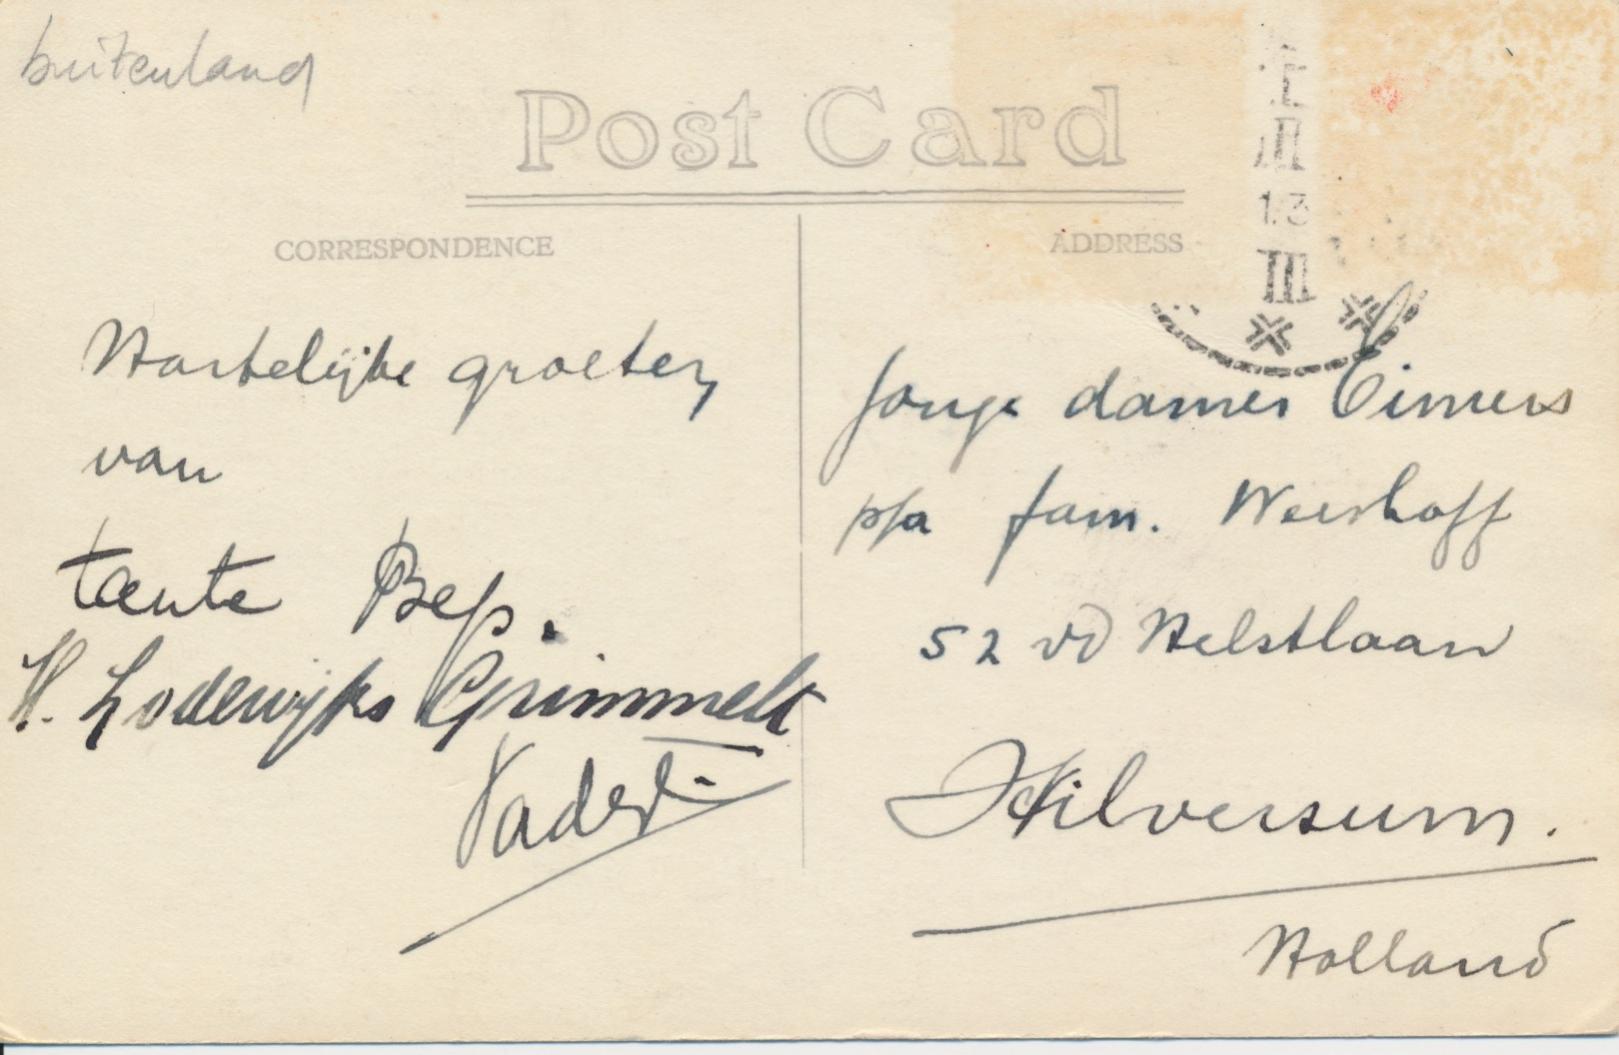 buitenland
Post Card
CORRESPONDENCE
ADDRESS
III
Hartelijke groeten
van
tante Bep.
H. Lodewijks Grimmelt
Vader
Jonge dames
p/a fam. Weerhoff
52 vd Helstlaan
Hilversum.
Holland